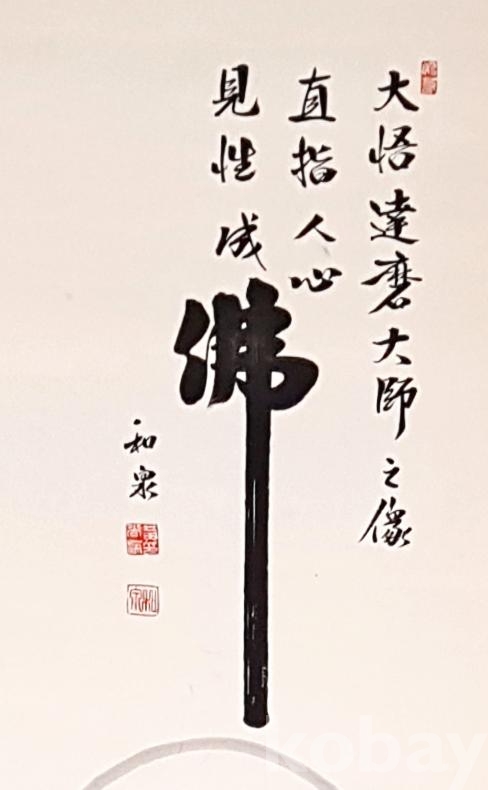 大悟達磨大師之像
直指人心
見性成佛
和泉
kobay